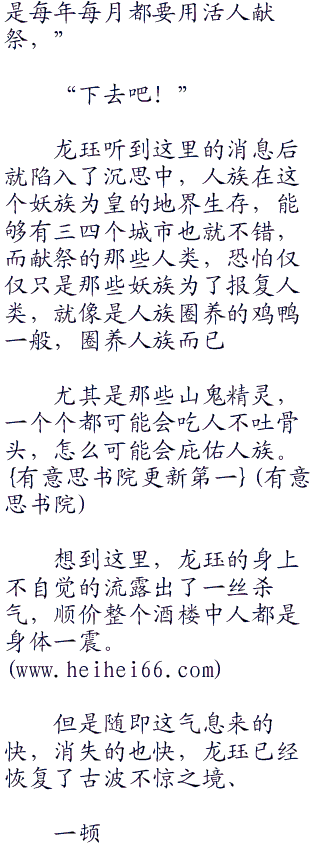 是每年每月都要用活人献
祭，”
“下去吧！”
龙珏听到这里的消息后
就陷入了沉思中，人族在这
个妖族为皇的地界生存，能
够有三四个城市也就不错，
而献祭的那些人类，恐怕仅
仅只是那些妖族为了报复人
类，就像是人族圈养的鸡鸭
一般，圈养人族而已
尤其是那些山鬼精灵，
一个个都可能会吃人不吐骨
头，怎么可能会庇佑人族。
{有意思书院更新第一} (有意
思书院)
想到这里，龙珏的身上
不自觉的流露出了一丝杀
气，顺价整个酒楼中人都是
身体一震。
(www.heihei66.com)
但是随即这气息来的
快，消失的也快，龙珏已经
恢复了古波不惊之境、
一顿